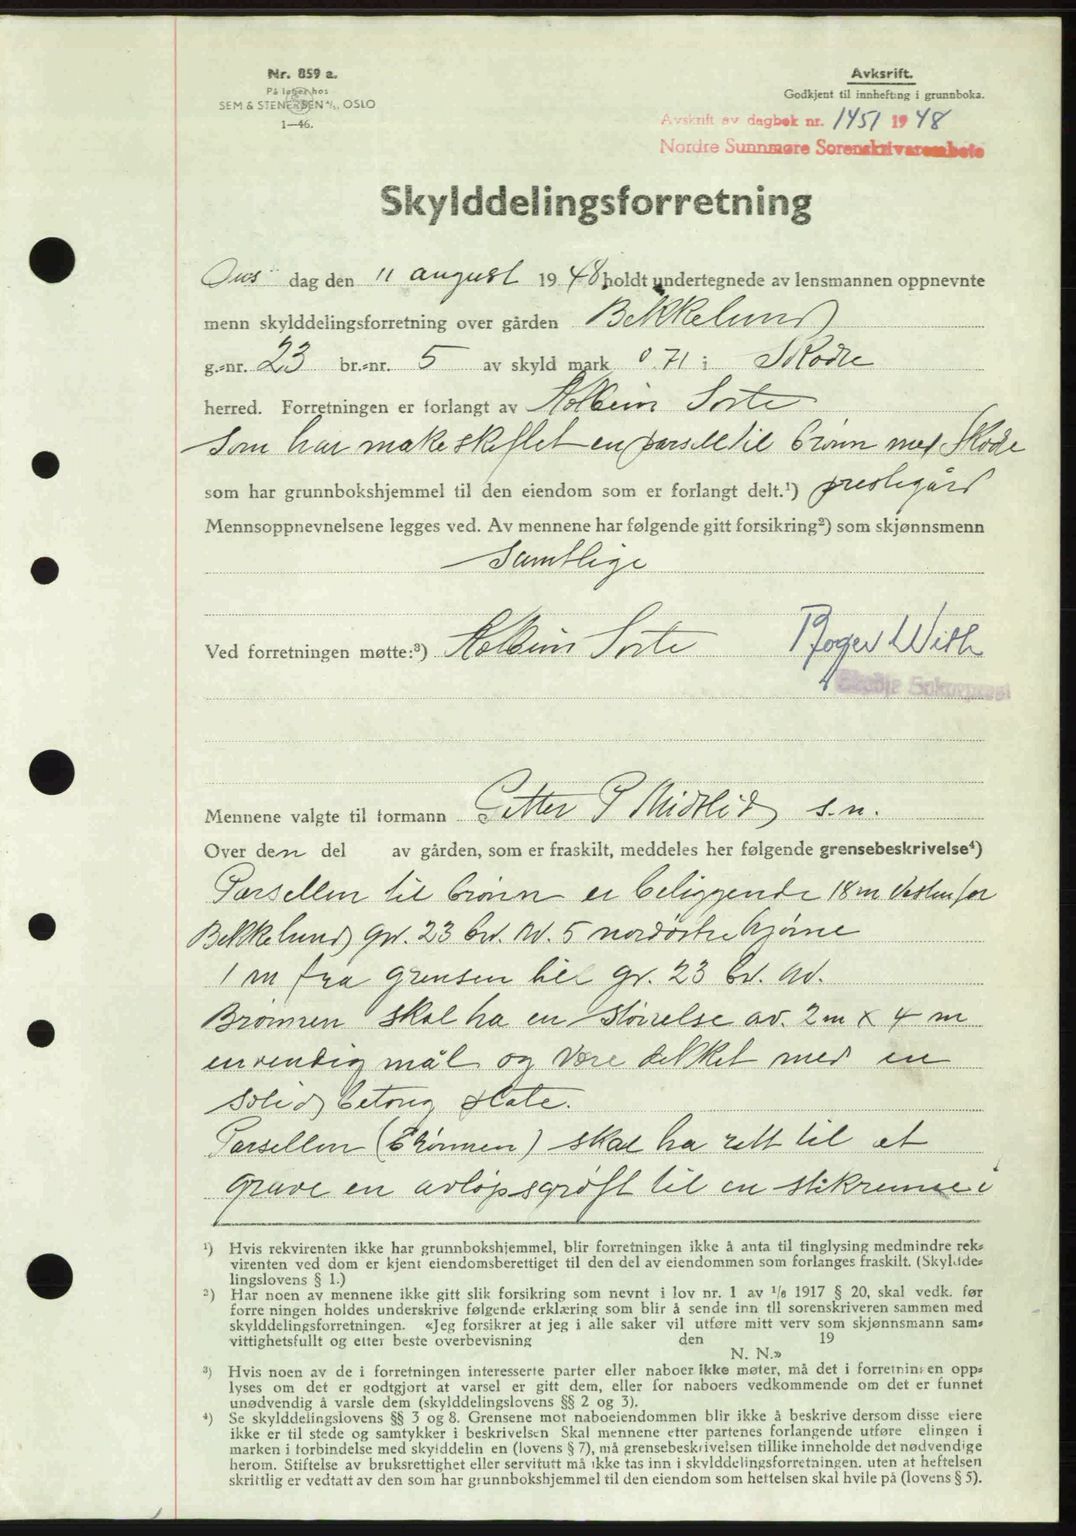 Nr. 859 a.
På lager hos
SEM & STENERSEN A/S, OSLO
1—46.
Avksrift.
Godkjent til innhefting i grunnboka.
Avskrift av dagbok nr. 1451 1948
Nordre Sunnmøre Sorenskrivarembete
Skylddelingsforretning
Ons dag den 11 august 1948 holdt undertegnede av lensmannen oppnevnte
menn skylddelingsforretning over gården Bekkelund
g.=nr. 23 br.=nr. 5 av skyld mark 0.71 i Skodje
herred. Forretningen er forlangt av Kolbein Sorte
Som har makeskiftet en parsell til brønn med Skodje
som har grunnbokshjemmel til den eiendom som er forlangt delt.¹) prestegård
Mennsoppnevnelsene legges ved. Av mennene har følgende gitt forsikring²) som skjønnsmenn
Samtlige
Ved forretningen møtte:³) Kolbein Sorte Roger With
Skodje Sokneprest
Mennene valgte til formann Petter P Midtlid s.n.
Over den del av gården, som er fraskilt, meddeles her følgende grensebeskrivelse⁴)
Parsellen til brønn er beliggende 18 m vestenfor
Bekkelund gnr. 23 br. nr. 5 nordøstre hjørne
1 m fra grensen til gr. 23 br. nr.
Brønnen skal ha en størrelse av. 2 m x 4 m
innvendig mål og være dekket med en
solid betong plate.
Parsellen (Brønnen) skal ha rett til at
grave en avløpsgrøft til en stikrenne i
¹) Hvis rekvirenten ikke har grunnbokshjemmel, blir forretningen ikke å anta til tinglysing medmindre rek=
virenten ved dom er kjent eiendomsberettiget til den del av eiendommen som forlanges fraskilt. (Skyldde=
lingslovens § 1.)
²) Har noen av mennene ikke gitt slik forsikring som nevnt i lov nr. 1 av 1/6 1917 § 20, skal vedk. før
forre ningen holdes underskrive følgende erklæring som blir å sende inn til sorenskriveren sammen med
skylddelingsforretningen. «Jeg forsikrer at jeg i alle saker vil utføre mitt verv som skjønnsmann sam=
vittighetsfullt og etter beste overbevisning den 19
N. N.»
³) Hvis noen av de i forretningen interesserte parter eller naboer ikke møter, må det i forretningen opp=
lyses om det er godtgjort at varsel er gitt dem, eller for naboers vedkommende om det er funnet
unødvendig å varsle dem (skylddelingslovens §§ 2 og 3).
⁴) Se skylddelingslovens §§ 3 og 8. Grensene mot naboeiendommen blir ikke å beskrive dersom disse eiere
ikke er til stede og samtykker i beskrivelsen Skal mennene etter partenes forlangende utføre elingen i
marken i forbindelse med skylddelin en (lovens § 7), må grensebeskrivelsen tillike inneholde det nødvendige
herom. Stiftelse av bruksrettighet eller servitutt må ikke tas inn i skylddelingsforretningen. uten at heftelsen
skriftlig er vedtatt av den som har grunnbokshjemmel til den eiendom som heftelsen skal hvile på (lovens § 5).